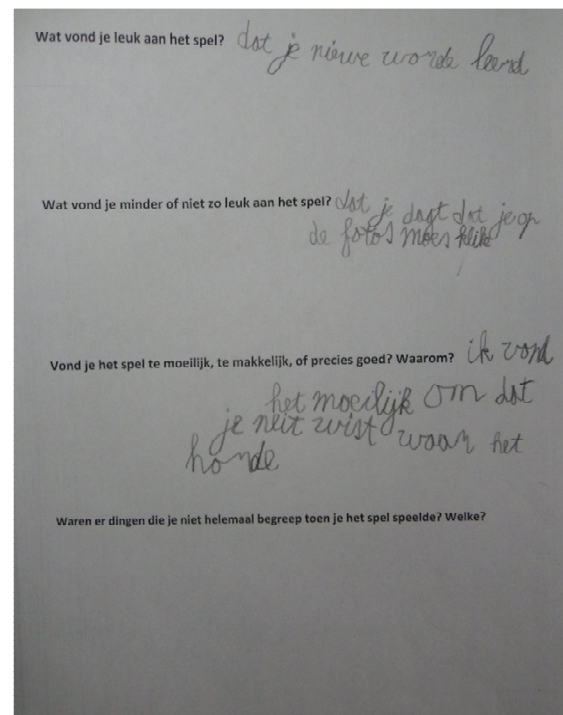 Wat vond je leuk aan het spel? dat je nieuwe worde leerd
Wat vond je minder of niet zo leuk aan het spel? dat je dagt dat je op
de foto's moes klike
Vond je het spel te moeilijk, te makkelijk, of precies goed? Waarom? ik vond
het moeilijk om dat
je neit wist waar het
honde
Waren er dingen die je niet helemaal begreep toen je het spel speelde? Welke?